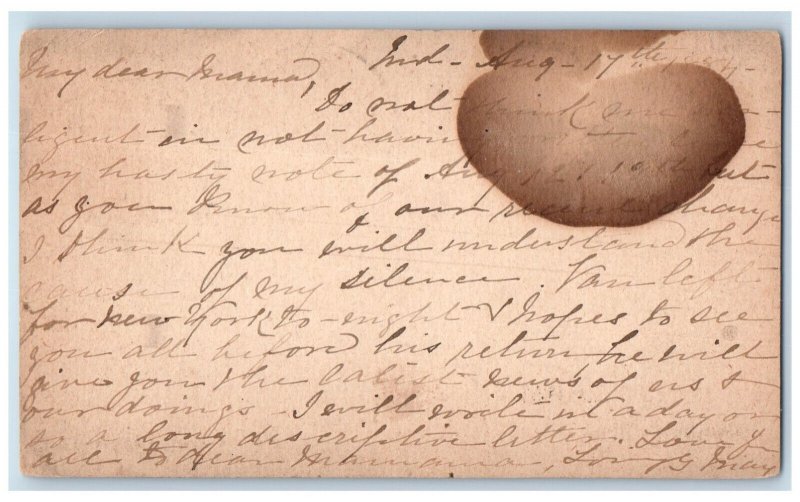 My dear Mama, Ind- Aug- 17th
Do not think me
ligent in not having
my hasty note of Aug but
as you know of our recent change
I think you will understand the
cause of my silence. Van left
for New York to-night & hopes to see
you all before his return, he will
give you the latist news of us &
our doings. I will write in a day or
so a long descriptive letter. Love
all to dear Mamama, Lov'g May